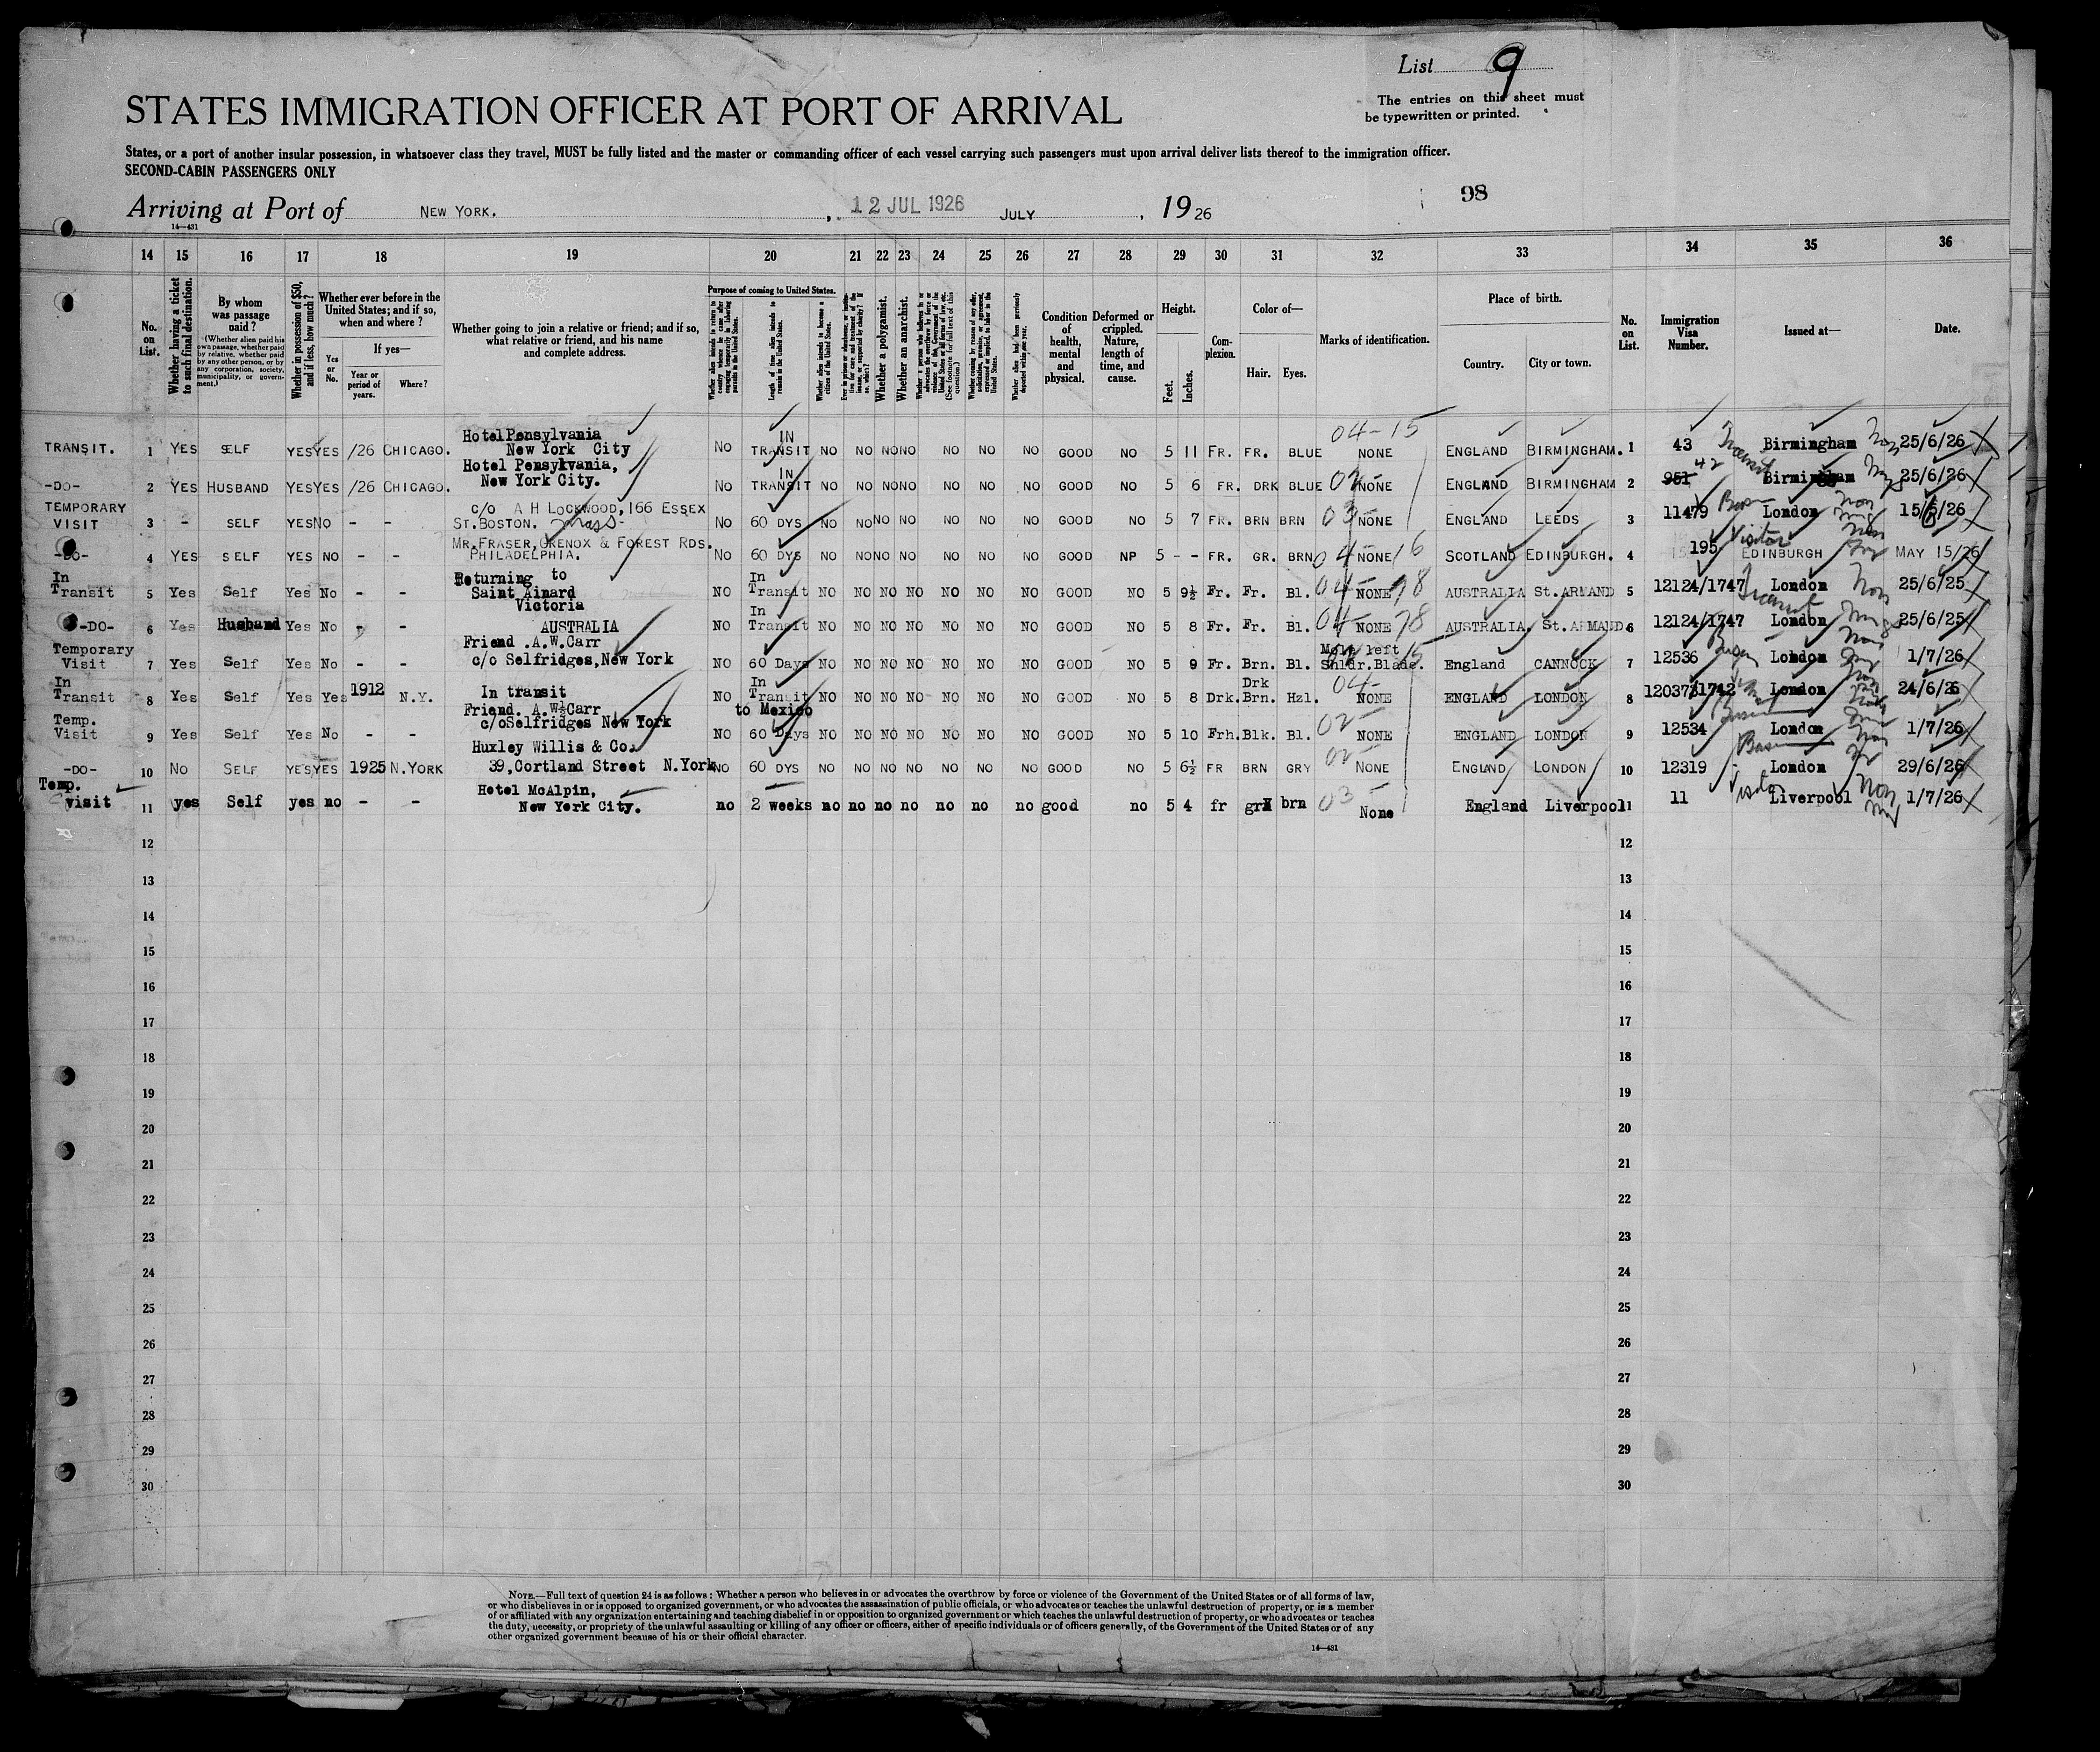 List 9
The entries on this sheet must
be typewritten or printed.
STATES IMMIGRATION OFFICER AT PORT OF ARRIVAL
States, or a port of another insular possession, in whatsoever class they travel, MUST be fully listed and the master or commanding officer of each vessel carrying such passengers must upon arrival deliver lists thereof to the immigration officer.
SECOND-CABIN PASSENGERS ONLY
98
Arriving at Port of NEW YORK. , 12 JUL 1926 JULY , 19 26
14—431
14 15 16 17 18 19 20 21 22 23 24 25 26 27 28 29 30 31 32 33 34 35 36
No. on List.
Whether having a ticket to such final destination.
By whom was passage paid?
(Whether alien paid his own passage, whether paid by relative, whether paid by any other person, or by any corporation, society, municipality, or government.)
Whether in possession of $50, and if less, how much?
Whether ever before in the United States; and if so, when and where?
Yes or No.
If yes—
Year or period of years.
Where?
Whether going to join a relative or friend; and if so, what relative or friend, and his name and complete address.
Purpose of coming to United States.
Length of time alien intends to remain in the United States.
Whether alien intends to become a citizen of the United States.
Whether a polygamist.
Whether an anarchist.
Condition of health, mental and physical.
Deformed or crippled. Nature, length of time, and cause.
Height.
Feet. Inches.
Complexion.
Color of—
Hair. Eyes.
Marks of identification.
Place of birth.
Country. City or town.
No. on List.
Immigration Visa Number.
Issued at—
Date.
TRANSIT. 1 YES SELF YES YES /26 CHICAGO. Hotel Pensylvania New York City NO IN TRANSIT NO NO NO NO NO NO NO GOOD NO 5 11 FR. FR. BLUE 04-15 NONE ENGLAND BIRMINGHAM. 1 43 Transit Birmingham Non 25/6/26
-DO- 2 YES HUSBAND YES YES /26 CHICAGO. Hotel Pensylvania, New York City. NO IN TRANSIT NO NO NO NO NO NO NO GOOD NO 5 6 FR. DRK BLUE 02 NONE ENGLAND BIRMINGHAM 2 951 42 Birmingham 25/6/26
TEMPORARY VISIT 3 - SELF YES NO - - c/o A H LOCKWOOD, 166 ESSEX ST. BOSTON. Mass- NO 60 DYS NO NO NO NO NO NO NO GOOD NO 5 7 FR. BRN BRN 03 NONE ENGLAND LEEDS 3 11479 London Non 15/6/26
-DO- 4 YES SELF YES NO - - MR. FRASER, GRENOX & FOREST RDS. PHILADELPHIA. NO 60 DYS NO NO NO NO NO NO NO GOOD NP 5 - - FR. GR. BRN 04 NONE 16 SCOTLAND EDINBURGH. 4 195 Visitor EDINBURGH MAY 15/26
In Transit 5 Yes Self Yes No - - Returning to Saint Ainard Victoria NO In Transit NO NO NO NO NO NO NO GOOD NO 5 9½ Fr. Fr. Bl. 04 NONE 78 AUSTRALIA St. ARMAND 5 12124/1747 London Non 25/6/25
-DO- 6 Yes Husband Yes No - - AUSTRALIA NO In Transit NO NO NO NO NO NO NO GOOD NO 5 8 Fr. Fr. Bl. 04 NONE 78 AUSTRALIA. St. ARMAND 6 12124/1747 Transit London 25/6/25
Temporary Visit 7 Yes Self Yes No - - Friend .A.W.Carr c/o Selfridges, New York NO 60 Days NO NO NO NO NO NO NO GOOD NO 5 9 Fr. Brn. Bl. Mole left Shldr.Blade. England CANNOCK 7 12536 London Non 1/7/26
In Transit 8 Yes Self Yes Yes 1912 N.Y. In transit NO In Transit to Mexico NO NO NO NO NO NO NO GOOD NO 5 8 Drk. Drk Brn. Hzl. 04- NONE ENGLAND LONDON 8 12037/1742 London 24/6/26
Temp. Visit 9 Yes Self Yes No - - Friend. A.W.Carr c/o Selfridges New York NO 60 Days NO NO NO NO NO NO NO GOOD NO 5 10 Frh. Blk. Bl. 02- NONE ENGLAND LONDON 9 12534 London 1/7/26
-DO- 10 NO SELF YES YES 1925 N.YORK Huxley Willis & Co. 39, Cortland Street N.York NO 60 DYS NO NO NO NO NO NO NO GOOD NO 5 6½ FR BRN GRY 02- NONE ENGLAND LONDON 10 12319 London 29/6/26
Temp. visit 11 yes Self yes no - - Hotel McAlpin, New York City. no 2 weeks no no no no no no no good no 5 4 fr gr brn 03- None England Liverpool 11 11 Liverpool Non 1/7/26
12 12
13 13
14 14
15 15
16 16
17 17
18 18
19 19
20 20
21 21
22 22
23 23
24 24
25 25
26 26
27 27
28 28
29 29
30 30
NOTE.—Full text of question 24 is as follows: Whether a person who believes in or advocates the overthrow by force or violence of the Government of the United States or of all forms of law,
or who disbelieves in or is opposed to organized government, or who advocates the assassination of public officials, or who advocates or teaches the unlawful destruction of property, or is a member
of or affiliated with any organization entertaining and teaching disbelief in or opposition to organized government or which teaches the unlawful destruction of property, or who advocates or teaches
the duty, necessity, or propriety of the unlawful assaulting or killing of any officer or officers, either of specific individuals or of officers generally, of the Government of the United States or of any
other organized government because of his or their official character.
14—431